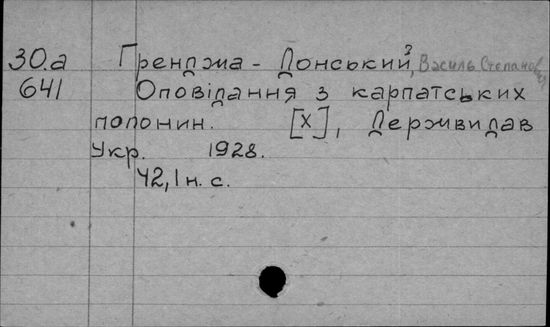 30.а Ґренджа - Донський, Василь Степанович
641 Оповідання з карпатських
полонин. [Х], Держвидав
Укр. 1928.
42, 1 н. с.